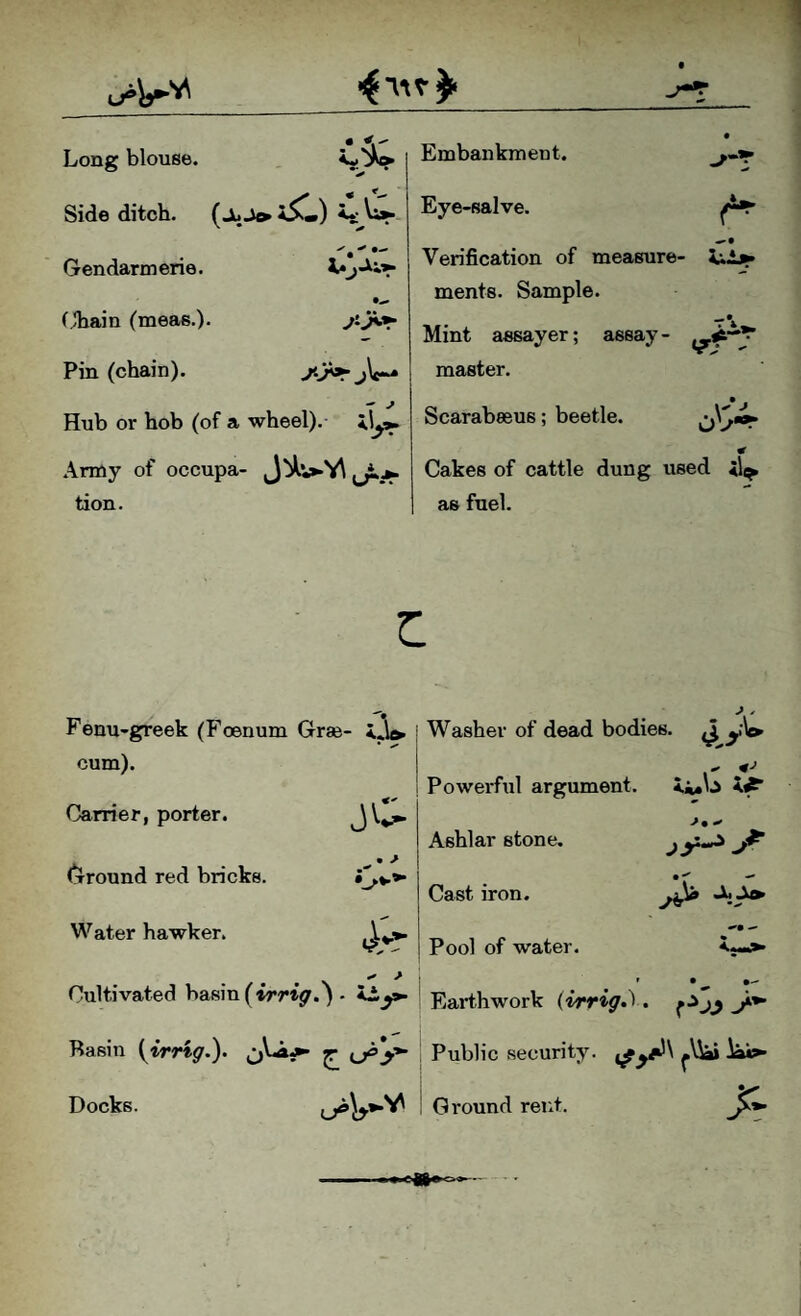 الاحواض جسر
Long blouse. جلّابية
Side ditch. (سكة حديد) جنّابية
Gendarmerie. جندرمة
Chain (meas.). جنزير
Pin (chain). مسمار جنزير
Hub or hob (of a wheel).
Army of occupa- جيش الاحتلال
tion.
Embankment. جسر
Eye-salve. جشم
Verification of measure- جشنة
ments. Sample.
Mint assayer; assay- جشنجي
master.
Scarabæus; beetle. جعران
Cakes of cattle dung used جلّة
as fuel.
ح
Fenu-greek (Fœnum Græ- حلبة
cum).
Carrier, porter. حمّال
Ground red bricks. حمرة
Water hawker. حملي
Cultivated basin (irrig.). حوشة
Basin (irrig.). حوض ج حيضان
Docks. الاحواض
Washer of dead bodies. حانوتي
Powerful argument. حجّة
Ashlar stone. حجر دستور
Cast iron. حديد ظهر
Pool of water.
Earthwork (irrig.). حفر وردم
Public security. حفظ النظام العمومي
Ground rent. حكر